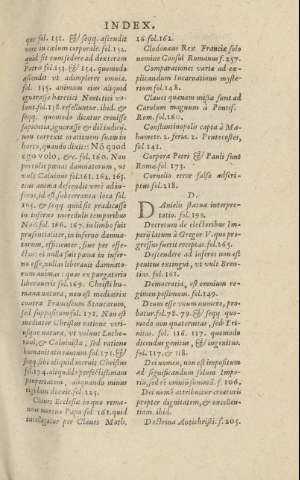 INDEX.
que fol. 151. & seqq. ascendit
vere in cælum corporale. fol. 152.
quid sit eum sedere ad dexteram
Patris fol. 153. & 154. quomodo
ascendit ut adimpleret omnia.
fol. 155. animam eius aliquid
ignorasse hæretici Noetitici vo-
lunt. fol. 158. refellantur. ibid. &
seqq. quomodo dicatur crevisse
sapientia,
non
horto, quando dixit: Nō quod
ego volo, &c. fol. 160. Non
pertulit pœnas damnatorum, ut
vult Calvinus fol. 161. 162. 163.
eius anima descendit verè ad in-
feros, id est subterranea loca fol.
165. & seqq. quid sit prædicasse
in inferno incredulis temporibus
Noë. fol. 166. 167. in limbo fuit
præsentialiter, in inferno damna-
torum, efficienter, sive per effe-
ctus: ex nulla fuit pœna in infer-
no esse, nullas liberavit damnato-
rum animas: quas ex purgatorio
liberaverit fol. 169. Christi hu-
mana natura, non est mediatrix
contra Franciscum Stancarum,
sed suppositum fol. 172. Non est
mediator Christus ratione utri-
usque naturæ, ut volunt Luthe-
rani, & Calvinistæ, sed ratione
humanitatis tantùm fol. 173. &
seqq.
fol. 174. aliquid perfectissimam
proprietatem, aliquando minus
rigidum dicere. fol. 125.
Claves Ecclesiæ in qua rema-
nent
intelligatur per Claves Matth.
16. fol. 162.
Clodonæus Rex Franciæ solo
nomine Consul Romanus f. 257.
Comparationes variæ ad ex-
plicandum Incarnationis myste-
rium fol. 148.
Claves quænam missæ sunt ad
Carolum magnum à Pontif.
Rom. fol. 260.
Constantinopolis capta à Ma-
humete 2. feria 2. Pentecostes,
fol. 142.
Corpora Petri & Pauli sunt
Romæ. fol. 173.
Cornelio erroæ falsò adscri-
ptus fol. 218.
D.
DAnielis statuæ interpre-
tatio. fol. 192.
Decretum de electoribus Im-
perij ucium à Gregor V. quo pro-
gressu fuerit receptus. fol. 265.
Descendere ad inferos non est
penitus extingui, ut vult Bren-
tius. fol. 161.
Democratia, est omnium re-
gimen pessimum. fol. 149.
Deum esse unum numero, pro-
batur. fol. 78. 79. & seqq. quo-
modo non quaternitas, sed Tri-
nitas. fol. 116. 117. quomodo
dicendus genitus, & ingenitus.
fol. 117. & 118.
Dei nomen, non est impositum
ad significandum solum Impe-
rio, sed et omnis summā. f. 106,
Dei nomē attribuitur creaturis
propter dignitatem, & excellen-
tiam. ibid.
Doctrina Antichristi. f. 205.